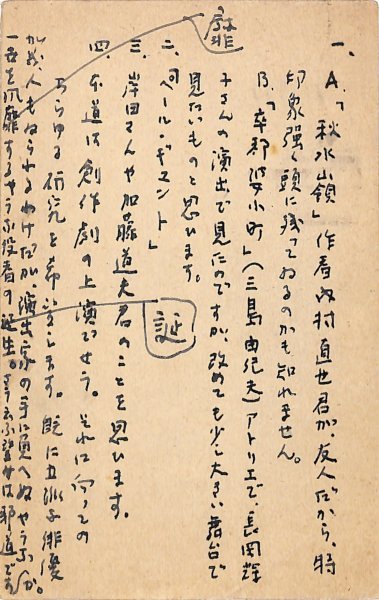 一、A、「秋水山嶺」作者内村直也君が、友人だから、特に
印象強く頭に残ってゐるのかも知れません。
B、「卒都婆小町」(三島由紀夫)アトリエで、長岡輝
子さんの演出で見たのですが、改めても少し大きい舞台で
見たいものと思ひます。
二、「ペール・ギュント」
三、岸田さんや加藤道夫君のことを思ひます。
四、本道は創作劇の上演でせう。それに向っての
あらゆる研究を希望します。既に立派な俳優
がゐ、人もゐられるわけだが、演出家の手に負へぬやうな、
一世を風靡するやうな役者の誕生。さういふ望みは邪道です
靡
誕